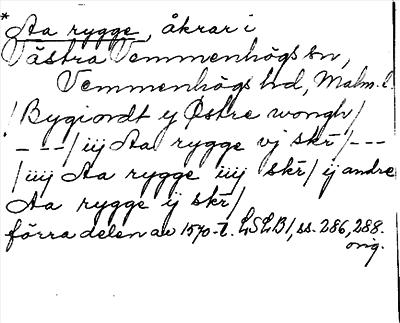 * Aa rygge, åkrar i
Västra Vemmenhögs sn,
Vemmenhögs hd, Malm. l.
/Bygiordt y Østre wongh/
- - -/iiij Aa rygge vj skr/- - -
/iiij Aa rygge iiij skr/ ij andre
Aa rygge ij skr/
förra delen av 1570-t. LSLB1, ss. 286, 288.
orig.